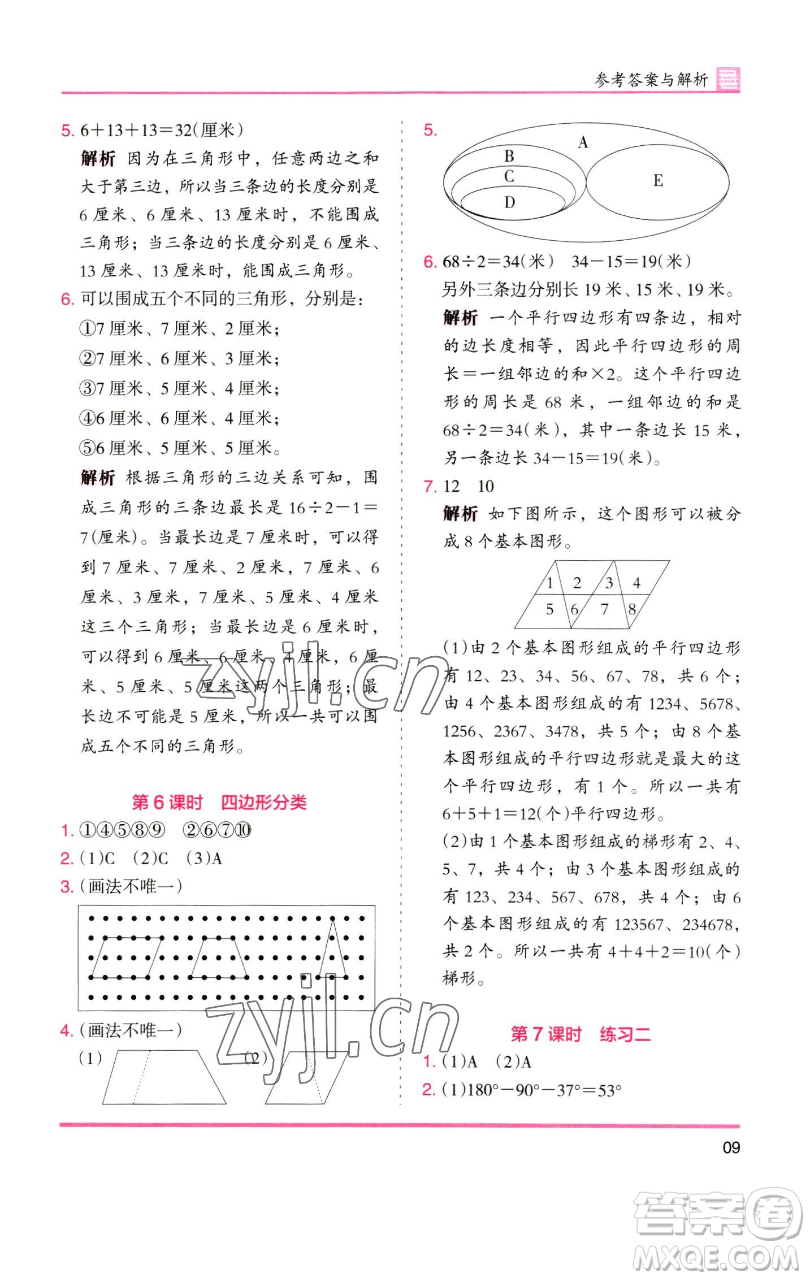 参考答案与解析
5. 6+13+13=32(厘米)
解析 因为在三角形中，任意两边之和
大于第三边，所以当三条边的长度分别是
6 厘米、6 厘米、13 厘米时，不能围成
三角形；当三条边的长度分别是 6 厘米、
13 厘米、13 厘米时，能围成三角形。
6. 可以围成五个不同的三角形，分别是：
①7 厘米、7 厘米、2 厘米；
②7 厘米、6 厘米、3 厘米；
③7 厘米、5 厘米、4 厘米；
④6 厘米、6 厘米、4 厘米；
⑤6 厘米、5 厘米、5 厘米。
解析 根据三角形的三边关系可知，围
成三角形的三条边最长是 16÷2－1＝
7(厘米)。当最长边是 7 厘米时，可以得
到 7 厘米、7 厘米、2 厘米，7 厘米、6
厘米、3 厘米，7 厘米、5 厘米、4 厘米
这三个三角形；当最长边是 6 厘米时，
可以得到 6 厘米、6 厘米、4 厘米，6 厘
米、5 厘米、5 厘米这两个三角形；最
长边不可能是 5 厘米，所以一共可以围
成五个不同的三角形。
第 6 课时 四边形分类
1. ①④⑤⑧⑨ ②⑥⑦⑩
2. (1)C (2)C (3)A
3. (画法不唯一)
4. (画法不唯一)
(1) (2)
5.
A
B
C
D
E
6. 68÷2=34(米) 34－15=19(米)
另外三条边分别长 19 米、15 米、19 米。
解析 一个平行四边形有四条边，相对
的边长度相等，因此平行四边形的周
长＝一组邻边的和×2。这个平行四边
形的周长是 68 米，一组邻边的和是
68÷2=34(米)，其中一条边长 15 米，
另一条边长 34－15=19(米)。
7. 12 10
解析 如下图所示，这个图形可以被分
成 8 个基本图形。
1 2 3 4
5 6 7 8
(1)由 2 个基本图形组成的平行四边形
有 12、23、34、56、67、78，共 6 个；由
4 个基本图形组成的有 1234、5678、
1256、2367、3478，共 5 个；由 8 个基
本图形组成的平行四边形就是最大的这
个平行四边形，有 1 个。所以一共有
6+5+1=12(个)平行四边形。
(2)由 2 个基本图形组成的梯形有 2、4、
5、7，共 4 个；由 3 个基本图形组成的
有 123、234、567、678，共 4 个；由 6
个基本图形组成的有 123567、234678，
共 2 个。所以一共有 4+4+2=10(个)
梯形。
第 7 课时 练习二
1. (1)A (2)A
2. (1)180°－90°－37°=53°
09
zyjl.cn
zyjl.cn
答案卷
MXQE.COM